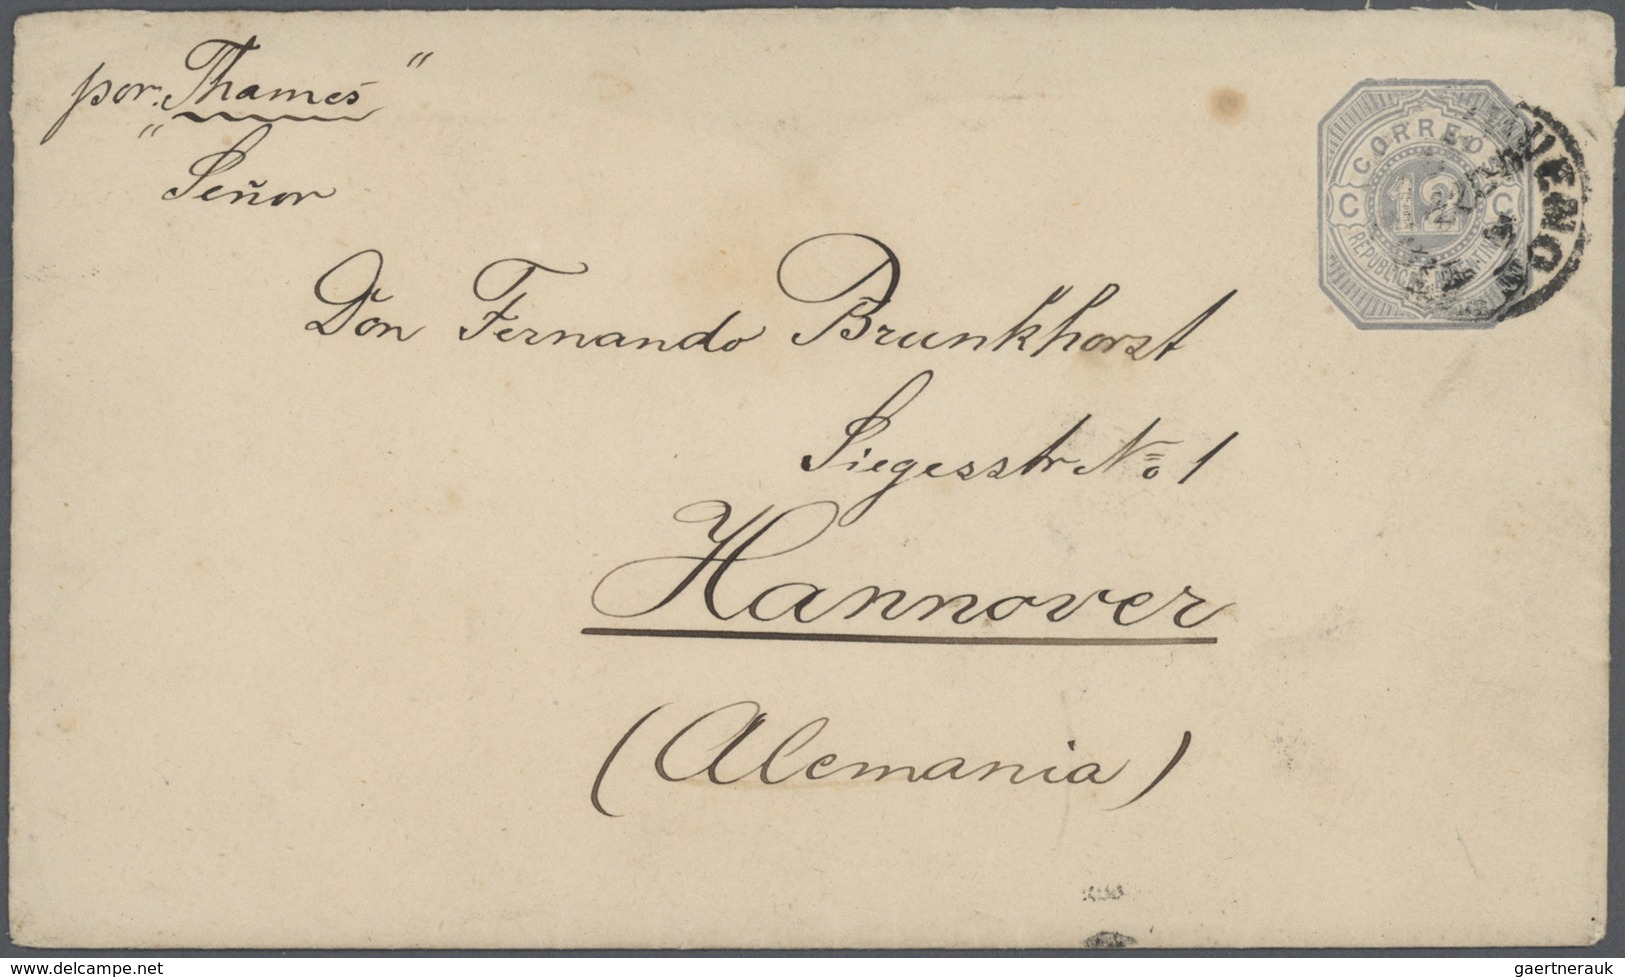 por "Thames"
Señor
Dⁿ Don Fernando Brunkhorst
Siegesstr No 1
Hannover
(Alemania)
CORREO
C 12 C
REPUBLICA ARGENTINA
BUENO
delcampe.net
gaertnerauk